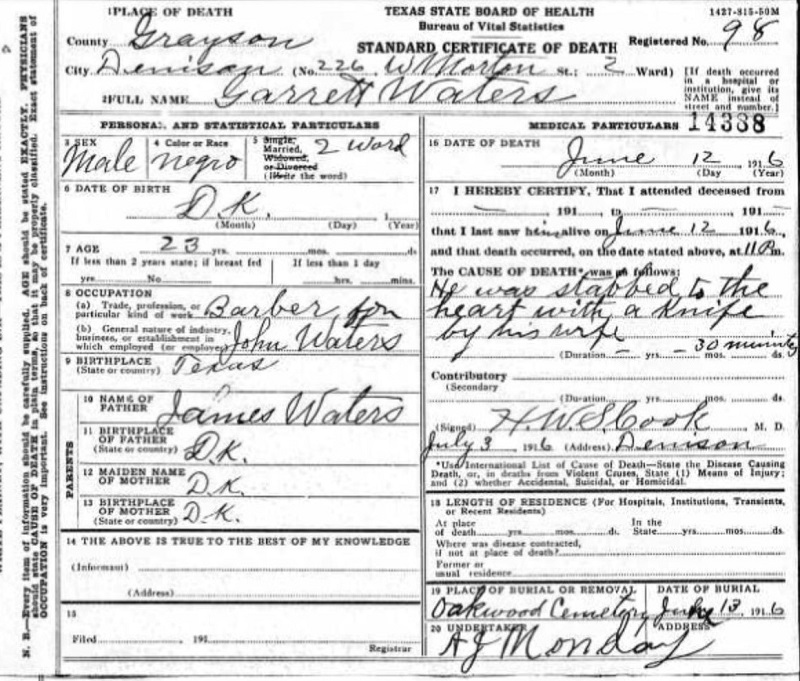 1PLACE OF DEATH
TEXAS STATE BOARD OF HEALTH
1427-815-50M
Bureau of Vital Statistics
County Grayson
STANDARD CERTIFICATE OF DEATH
Registered No. 98
City Denison (No. 226 W Morton St.; 2 Ward)
[If death occurred in a hospital or institution, give its NAME instead of street and number.]
2FULL NAME Garrett Waters
PERSONAL AND STATISTICAL PARTICULARS
3 SEX
Male
4 Color or Race
negro
5 Single, Married, Widowed, or Divorced (Write the word)
2 Ward
6 DATE OF BIRTH
D.K. 1
(Month) (Day) (Year)
7 AGE 23 yrs. mos. ds
If less than 2 years state; if breast fed
yrs. No
If less than 1 day
hrs. mins.
8 OCCUPATION
(a) Trade, profession, or particular kind of work Barber for
(b) General nature of industry, business, or establishment in which employed (or employer) John Waters
9 BIRTHPLACE
(State or country) Texas
PARENTS
10 NAME OF FATHER James Waters
11 BIRTHPLACE OF FATHER
(State or country) D.K.
12 MAIDEN NAME OF MOTHER D.K.
13 BIRTHPLACE OF MOTHER
(State or country) D.K.
14 THE ABOVE IS TRUE TO THE BEST OF MY KNOWLEDGE
(Informant)
(Address)
15
Filed 191
Registrar
MEDICAL PARTICULARS 14388
16 DATE OF DEATH
June 12 1916
(Month) (Day) (Year)
17 I HEREBY CERTIFY, That I attended deceased from
191 , to 191
that I last saw him alive on June 12 1916,
and that death occurred, on the date stated above, at 11 P.m.
The CAUSE OF DEATH* was as follows:
He was stabbed to the
heart with a knife
by his wife
30 minutes
(Duration yrs. mos. ds.
Contributory
(Secondary
(Duration yrs. mos. ds.
(Signed) H.W.S. Cook M. D.
July 3 1916 (Address) Denison
*Use International List of Cause of Death—State the Disease Causing
Death, or, in deaths from Violent Causes, State (1) Means of Injury;
and (2) whether Accidental, Suicidal, or Homicidal.
18 LENGTH OF RESIDENCE (For Hospitals, Institutions, Transients,
or Recent Residents)
At place of death yrs. mos. ds.
In the State yrs. mos. ds.
Where was disease contracted,
if not at place of death?
Former or
usual residence
19 PLACE OF BURIAL OR REMOVAL
DATE OF BURIAL
Oakwood Cemetery June 13, 1916
20 UNDERTAKER
ADDRESS
A J Monday
N. B.—Every item of information should be carefully supplied. AGE should be stated EXACTLY. PHYSICIANS
should state CAUSE OF DEATH in plain terms, so that it may be properly classified. Exact statement of
OCCUPATION is very important. See instructions on back of certificate.